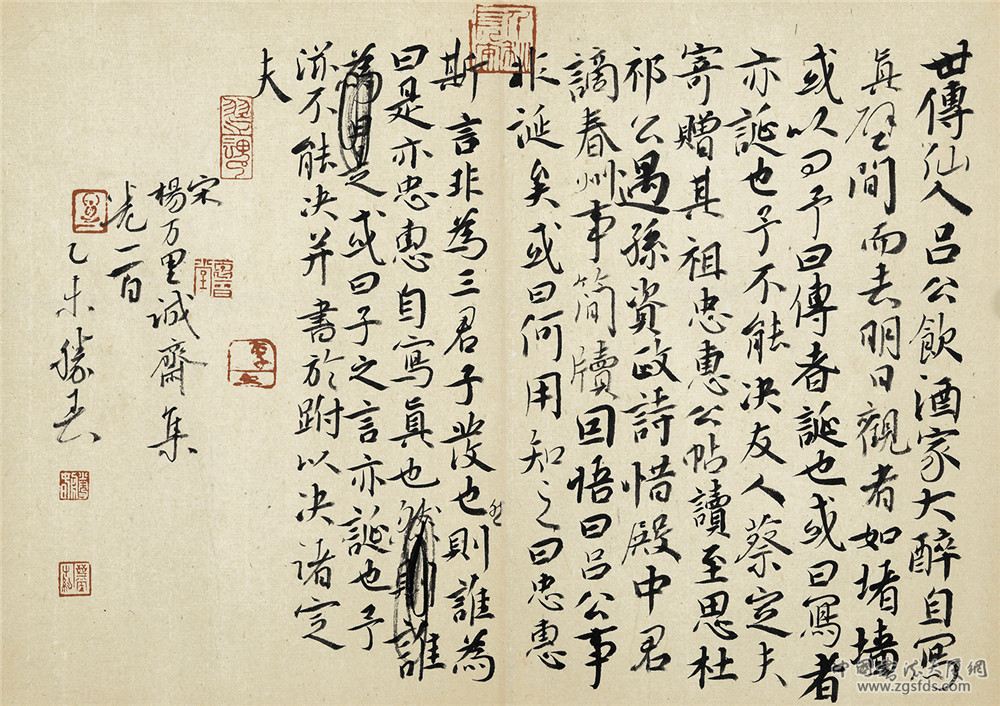 世傳仙人呂公飲酒家大醉自寫
真壁間而去明日觀者如堵墙
或以問予曰傳者誕也或曰寫者
亦誕也予不能决友人蔡定夫
寄贈其祖忠惠公帖讀至思杜
祁公遇孫資政詩惜殿中君
謫春州事簡牘回悟曰呂公事
非誕矣或曰何用知之曰忠惠
斯言非為三君子發也然則誰為
曰是亦忠惠自寫真也誰
或曰子之言亦誕也予
滋不能决并書於跗以决諸定
夫
宋
楊万里誠齋集
卷一百
乙未
www.zgsfds.com